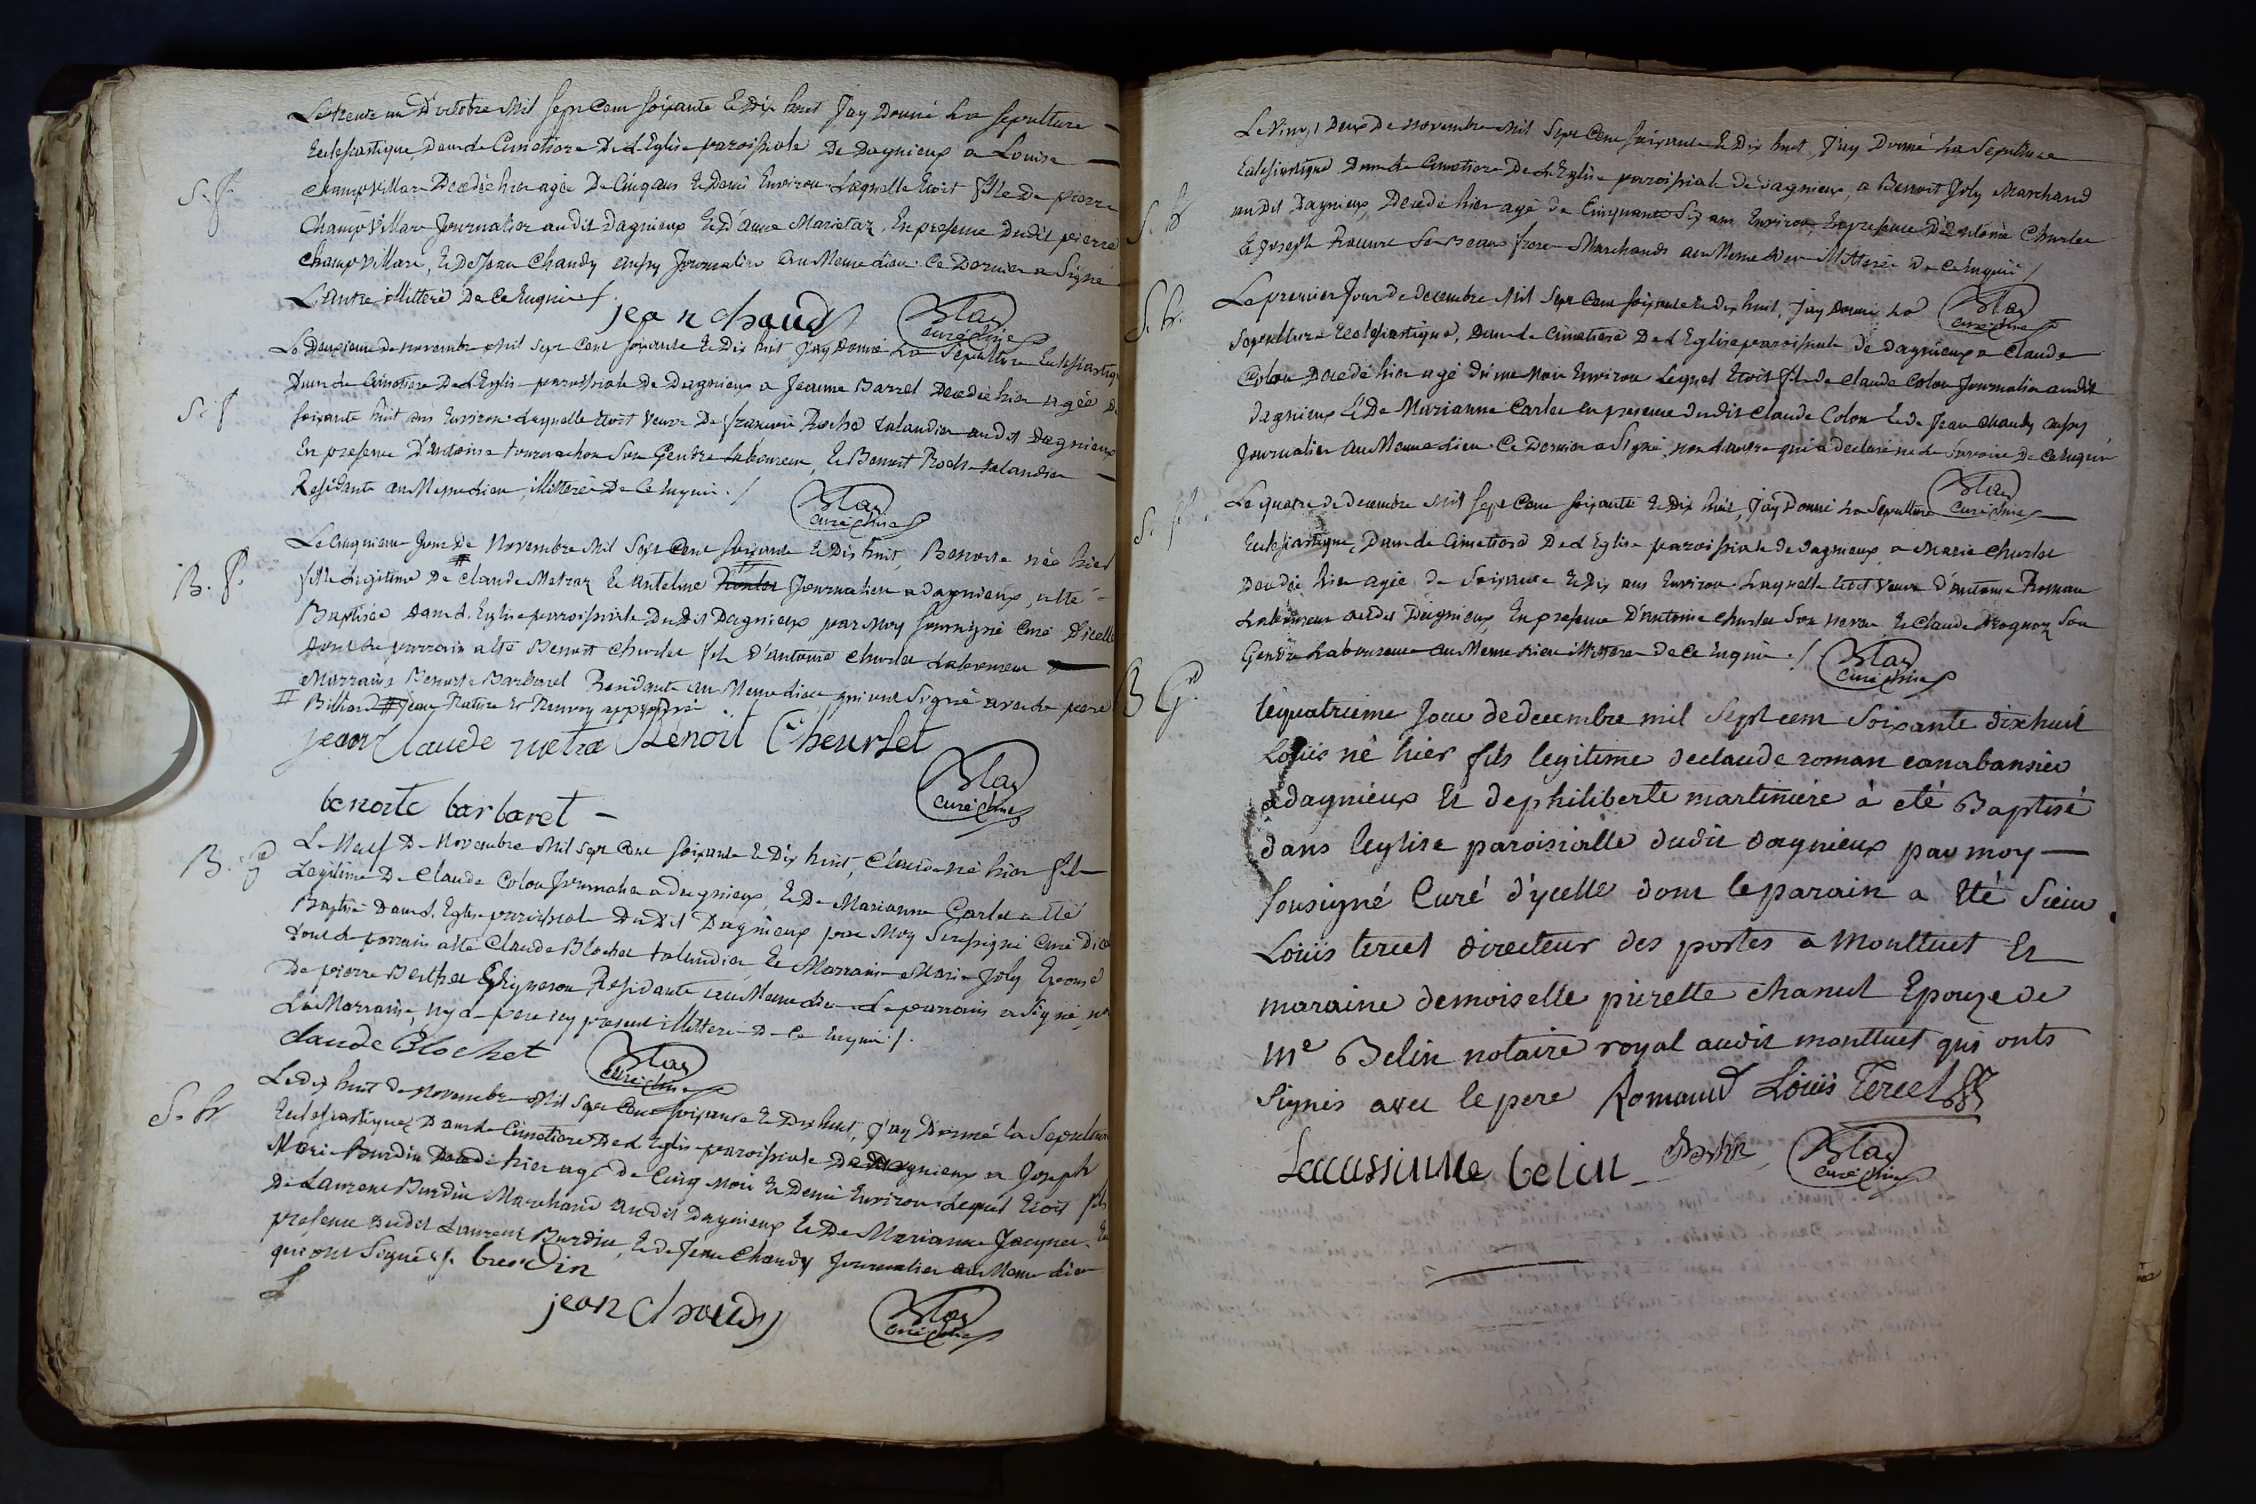 Le trente un D'octobre Mil Sept Cent soixante Et Dix huit J'ay Donné La sepulture
Eclesiastique Dans Le Cimetiere De L'Eglise paroissiale De Dagnieux a Louise
S. f.
Champvillard Decedée hier agée De Cinq ans Et Demi Environ Laquelle Etoit fille De pierre
Champvillard Journalier audit Dagnieux Et D'anne Marietaz, En presence Dudit pierre
Champvillard, Et De Jean Chaudy aussy Journalier Au Meme Lieu. Ce Dernier a Signé
L'autre illitteré De Ce Enquis /.
jean chaudy
Blay
curé
Le Deuxieme De novembre Mil Sept Cent Soixante Et Dix huit J'ay Donné La Sepulture Eclesiastique
Dans Le Cimetiere De L'Eglise paroissiale De Dagnieux a Jeanne Barrel Decedée hier agée De
S. f
soixante huit ans Environ Laquelle Etoit Veuve De françois Roche talandier audit Dagnieux
En presence D'antoine tournachon Son Gendre Laboureur, Et Benoit Roche talandier
Residants au Meme Lieu, illitterés De Ce Enquis. /
Blay
curé
Le Cinquieme Jour De Novembre Mil Sept Cent soixante Et Dix huit, Benoite née hier
B. f.
fille Legitime De # Claude Metraz Et anteline Journalier a Dagnieux, a Eté
Baptisée Dans L'Eglise paroissiale Dudit Dagnieux par Moy Soussigné Curé D'icelle
Dont Le parrain a Eté Benoit Churlet fils D'antoine Churlet Laboureur
Marraine Benoite Barbaret Residants au Meme Lieu, qui ont Signé avec Le pere
Billiard # Jean Rature Et Renvoy approuvé
jean Claude metra Benoit Cheurlet
Blay
curé
benoite barbaret
Le Neuf De Novembre Mil Sept Cent soixante Et Dix huit, Claude né hier fils
B. G
Legitime De Claude Colon Journalier a Dagnieux, Et De Marianne Carlet a Eté
Baptisé Dans L'Eglise paroissiale Dudit Dagnieux par Moy Soussigné Curé D'icelle
Dont Le parrain a Eté Claude Blochet talandier, Et Marraine Marie Joly Epouse
De pierre Berthet Vigneron Residants au Meme Lieu Le parrain a Signé, non
La Marraine, ny Le pere icy present illitterés De Ce Enquis /.
claude Blochet
Blay
curé
Le dix huit De Novembre Mil Sept Cent Soixante Et Dix huit, J'ay Donné la Sepulture
S. G
Eclesiastique Dans Le Cimetiere De L'Eglise paroissiale De Dagnieux a Joseph
Marie Burdin Decedé hier agé De Cinq Mois Et Demi Environ Lequel Etoit fils
De Laurent Burdin Marchand audit Dagnieux Et De Marianne Jacquet. En
presence Dudit Laurent Burdin, Et De Jean Chaudy Journalier au Meme Lieu
qui ont Signés /. burdin
jean chaudy
Blay
curé
Le Vingt Deux De novembre Mil Sept Cent Soixante Et Dix huit, J'ay Donné La Sepulture
Eclesiastique Dans Le Cimetiere De L'Eglise paroissiale De Dagnieux, a Benoit Joly Marchand
S. G
audit Dagnieux, Decedé hier agé De Cinquante Six ans Environ En presence D'antoine Churlet
Et Joseph Son Beau frere Marchands au Meme Lieu illitterés De Ce Enquis /
Blay
curé
Le premier Jour De decembre Mil Sept Cent soixante Et dix huit, J'ay Donné La
S. G.
Sepulture Eclesiastique, Dans Le Cimetiere De L'Eglise paroissiale De Dagnieux a Claude
Colon Decedé hier agé D'un Mois Environ Lequel Etoit fils De Claude Colon Journalier audit
Dagnieux Et De Marianne Carlet En presence Dudit Claude Colon Et De Jean Chaudy aussy
Journalier au Meme Lieu. Ce Dernier a Signé, non L'autre qui a Declaré ne Le Savoir De Ce Enquis
Blay
curé
Le quatre De Decembre Mil Sept Cent Soixante Et Dix huit, J'ay Donné La Sepulture
S. f.
Eclesiastique, Dans Le Cimetiere De L'Eglise paroissiale De Dagnieux a Marie Churlet
Decedée hier agée de Soixante Et Dix ans Environ Laquelle Etoit Veuve D'antoine Roman
Laboureur audit Dagnieux, En presence D'antoine Churlet Son neveu Et Claude Son
Gendre Laboureurs au Meme Lieu illitterés De Ce Enquis. /
Blay
curé
B G.
Le quatrieme Jour de decembre mil Sept cent Soixante dix huit
Louis né hier fils legitime de claude roman canabassier
a dagnieux Et de philiberte martiniére à eté Baptisé
dans leglise paroisialle dudit dagnieux par moy
Sousigné Curé d'ycelle dont le parain a Eté Sieur
Louis tercet directeur des postes a Montluel Et
maraine demoiselle pierette chanut Epouze de
me Belin notaire royal audit montluel qui onts
Signés avec le pere Romand Louis Tercet
belin
Blay
curé